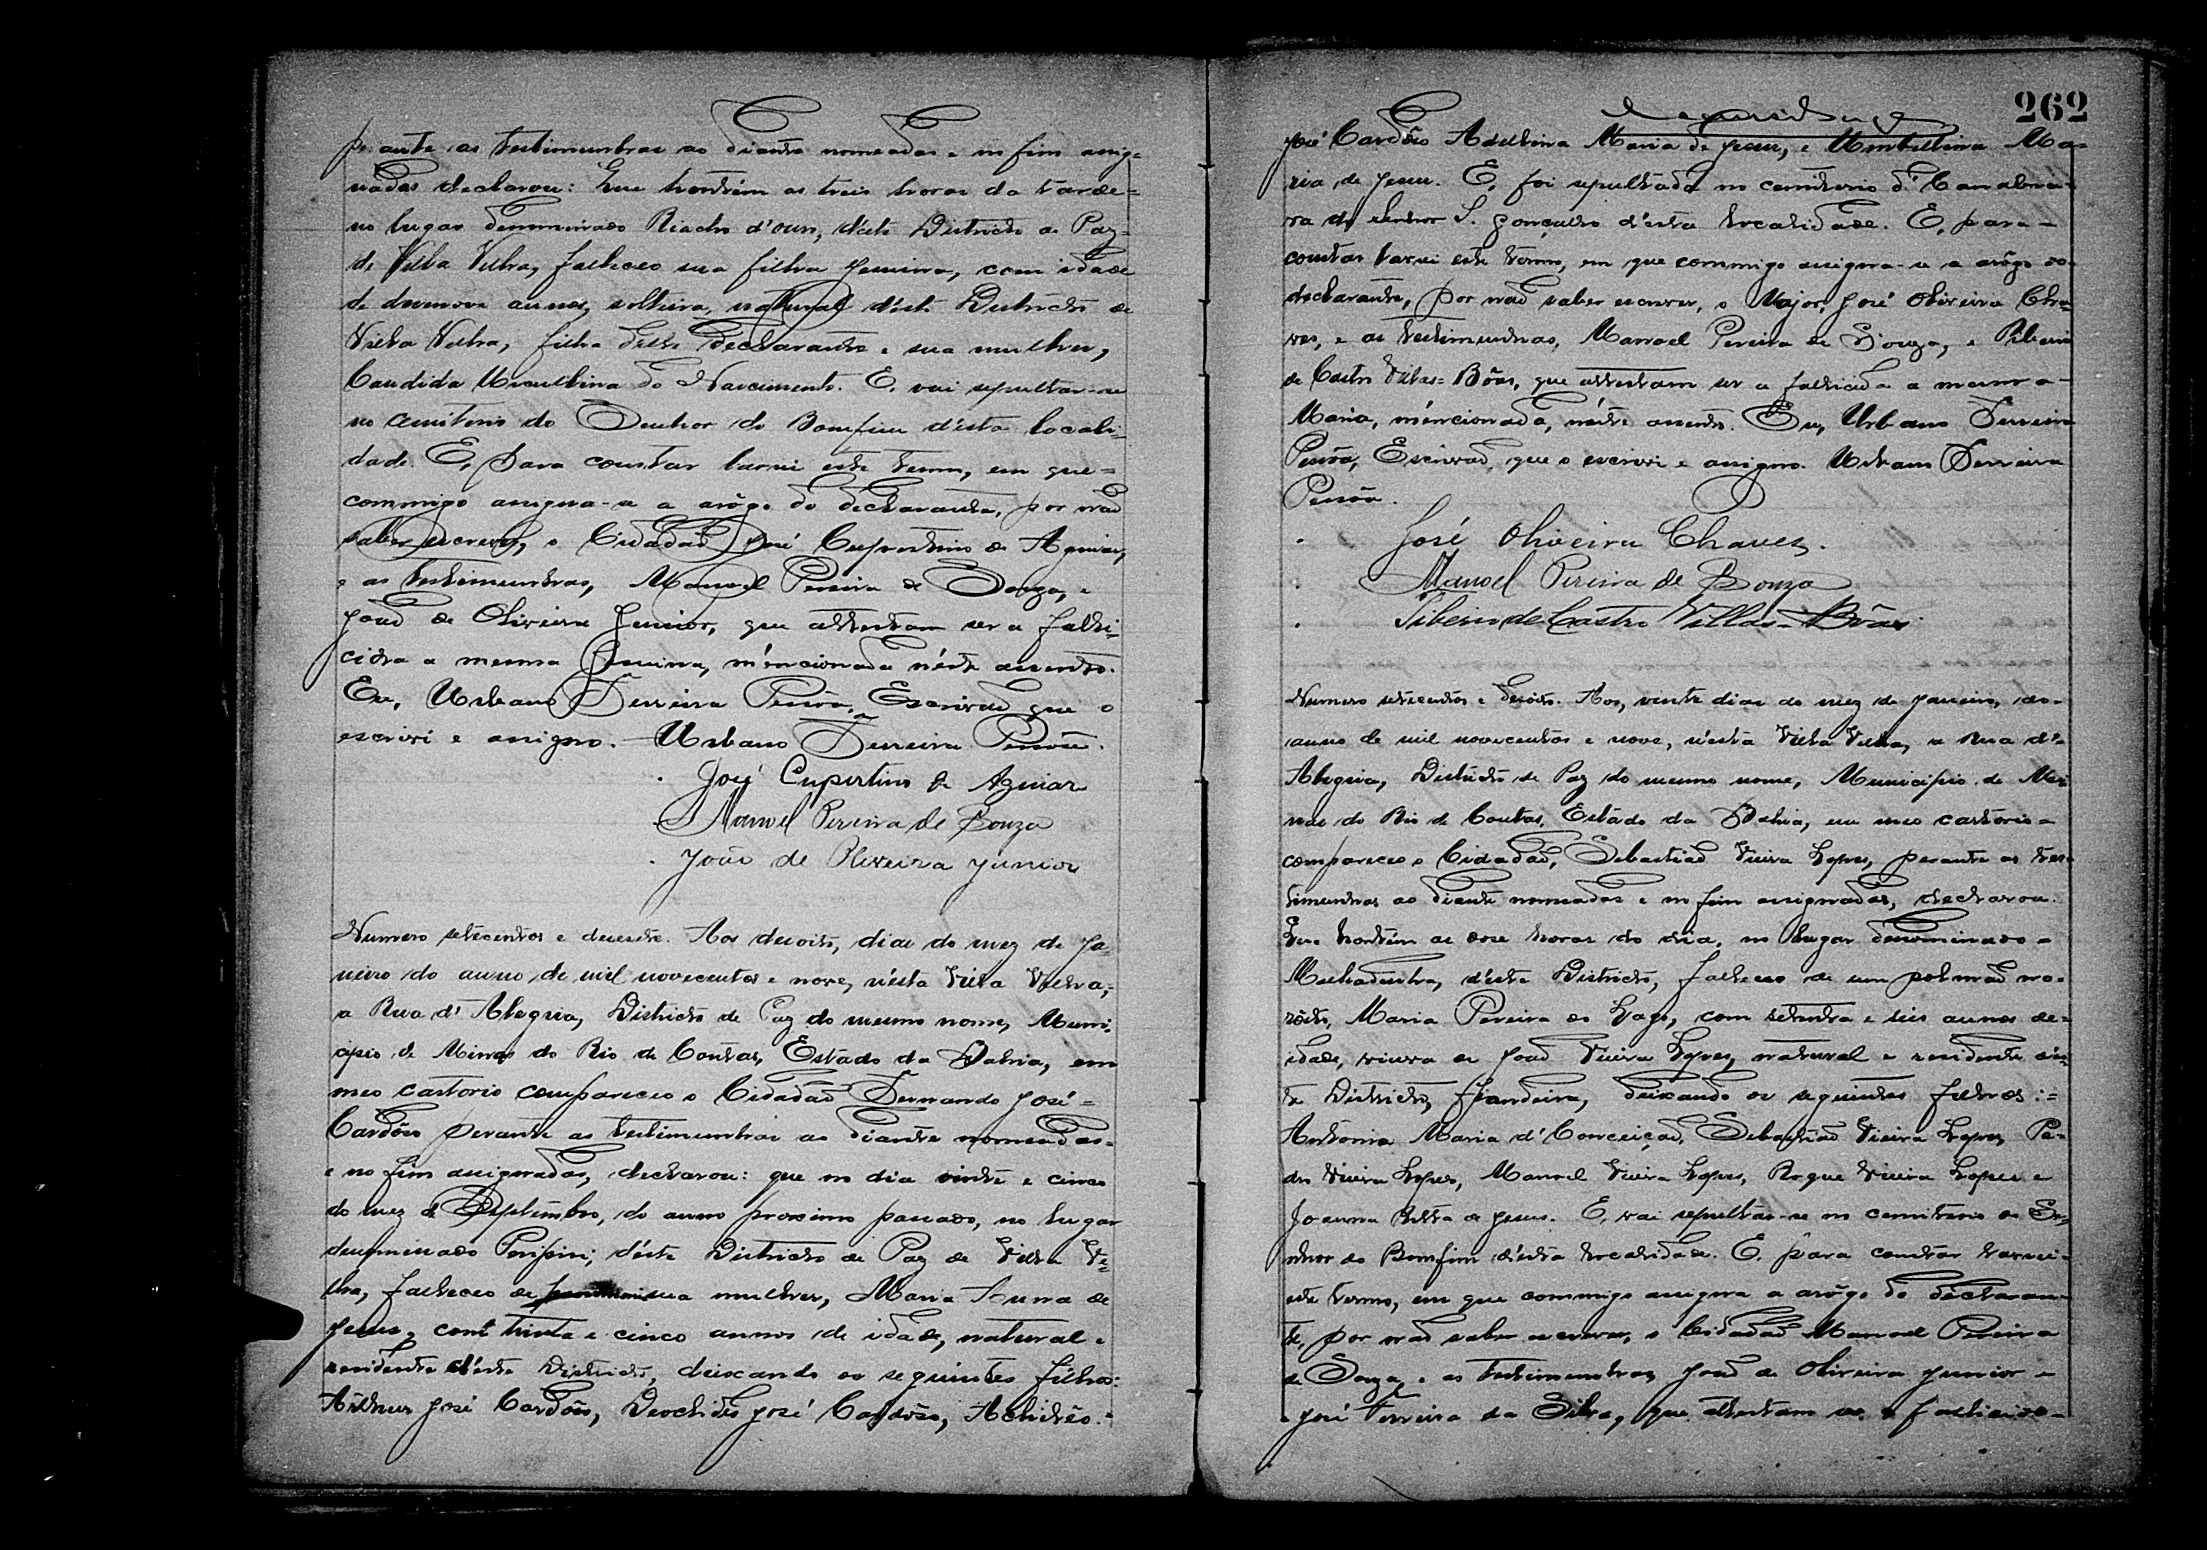 perante as testimunhas ao diante nomeadas e no fim assig=
nadas declarou: Que hontém as treis horas da tarde=
no lugar denominado Riacho d'ouro, d'éste Districto de Paz=
de Villa Velha, falleceo sua filha Jesuina, com idade
de desenove annos, solteira, natural d'éste Districto de
Villa Velha, filha delle declarante e sua mulher,
Candida Miquelina do Nascimento. E, vai sepultar-se
no cemiterio do Senhor do Bomfim d'ésta locali-
dade. E, para constar lavrei este termo, em que=
commigo assigna-se a arôgo do declarante, por não
saber escrever, o Cidadão José Cupertino de Aguiar,
e as testimunhas, Manoel Pereira de Souza, e
João de Oliveira Junior, que attestam ser a falle-
cida a mesma Jesuina, méncionada n'éste assento.
Eu, Urbano Ferreira Pessôa, Escrivão que o
escrivi e assigno. Urbano Ferreira Pessôa.
José Cupertino de Aguiar
Manoel Pereira de Souza
João de Oliveira Junior
Numero setecentos e desesete. Aos desoito, dias do mez de Ja-
neiro do anno de mil novecentos e nove, n'ésta Villa Velha,
a Rua d' Alegria, Districto de Paz do mesmo nome, Muni-
cipio de Minas do Rio de Contas, Estado da Bahia, em
meo cartorio compareceo o Cidadão Fernando José=
Cardôso perante as testimunhas ao diante nomeadas=
e no fim assignadas, declarou: que no dia vinte e cinco
do mez de Septembro, do anno proximo passado, no lugar
denominado Piripiri, d'éste Districto de Paz de Villa Ve=
lha, falleceo de sua mulher, Maria Anna de
Jesus, com trinta e cinco annos de idade, natural e
residente d'éste Districto, deixando os seguintes filhos:
Arthur José Cardôso, Deoclides José Cardôso,
262
José Cardôso Adelbina Maria de Jesus, e Umbellina Ma=
ria de Jesus. E, foi sepultada no cemiterio d' Cannabra-
va do Senhor S. Gonçallo d'ésta localidade. E, para-
constar lavrei este termo, em que commigo assigna-se a arôgo do
declarante, por não saber escrever, o Major, José Oliveira Cha-
ves, e as testimunhas, Manoel Pereira de Souza, e Tiberio
de Castro Villas=Bôas, que attestam ser a fallecida a mesma-
Maria, méncionada, néste assento. Eu, Urbano Ferreira
Pessôa, Escrivão, que o escrivi e assigno. Urbano Ferreira
Pessôa.
José Oliveira Chaves.
Manoel Pereira de Souza
Tiberio de Castro Villas-Bôas
Numero setecentos e desoito. Aos, vinte dias do mez de Janeiro, do-
anno de mil novecentos e nove, n'ésta Villa Velha, a Rua d'-
Alegria, Districto de Paz do mesmo nome, Municipio de Mi-
nas do Rio de Contas, Estado da Bahia, em meo cartorio-
compareceo o Cidadão, Sebastião Vieira Lopes, perante as tes-
timunhas ao diante nomeadas e no fim assignadas, declarou.
Que hontém as dose horas do dia, no lugar denominado-
d'éste Districto, falleceo de um
Maria Pereira do Lago, com setenta e seis annos de-
idade, viuva de João Vieira Lopes, natural e residente d'és-
te Districto, fiandeira, deixando os seguintes filhos:=
Antonia Maria d' Conceição, Sebastião Vieira Lopes, Pe-
dro Vieira Lopes, Manoel Vieira Lopes, Roque Vieira Lopes e
Joanna Ritta de Jesus. E, vai sepultar-se no cemiterio do Se-
nhor do Bomfim d'ésta localidade. E, para constar lavrei-
este termo, em que commigo assigna a arôgo do declaran-
te, por não saber escrever, o Cidadão Manoel Pereira
de Souza, e as testimunhas João de Oliveira Junior e
José Ferreira da Silva, que attestam ser a fallecida-